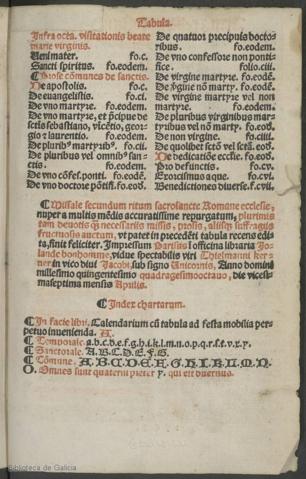 Tabula.
Infra octa. visitationis beate
marie virginis.
Veni mater. fo.c.
Sancti spiritus. fo.eodem.
¶ Prose cōmunes de sanctis.
De apostolis. fo.c.
De euangelistis. fo.ci.
De vno martyre. fo.eodem.
De vno martyre, et p̄cipue de
sctis sebastiano, vicētio, geor⸗
gio ⁊ laurentio. fo.eodem.
De pluribꝰ martyribꝰ. fo.cii.
De pluribus vel omnibꝰ san⸗
ctis. fo.eodem.
De vno cōfes.ponti. fo.eodē.
De vno doctore pōtifi. fo.eod.
De quatuor precipuis docto⸗
ribus. fo.eodem.
De vno confessore non ponti⸗
fice. folio.ciii.
De virgine martyre. fo.eodē.
De v̄gine nō marty. fo.eodē.
De virgine martyre vel non
martyre. fo.eodem.
De pluribus virginibus mar⸗
tyribus vel nō marty. fo.eod.
De non virgine. fo.ciiii.
De quolibet sctō vel sctā. eod.
De dedicatiōe eccłie. fo.eod.
Pro defunctis. fo.cv.
Prosarūmque aqu. fo.cvi.
Benedictiones diuerse. f.cvii.
¶ Missale secundum ritum sacrosancte Romane ecclesie,
nuper a multis mēdis accuratissime repurgatum, plurimis
tam deuotis q̄ necessariis missis, prosis, aliisq̄ suffragiis
fructuosius auctum, vt patet in precedēti tabula recens edi⸗
ta, finit feliciter. Impressum Parisiis ī officina libraria Jo⸗
lande bonhomme, vidue spectabilis viri Thielmanni ker⸗
uer in vico diui Jacobi, sub signo Unicornis, Anno domini
millesimo quingentesimo quadragesimooctauo, die vicesi⸗
maseptima mensis Aprilis.
¶ Index chartarum.
¶ In facie libri, Calendarium cū tabula ad festa mobilia per⸗
petuo inuenienda. A.
¶ Temporale. a.b.c.d.e.f.g.h.i.k.l.m.n.o.p.q.r.s.t.v.x.y.
¶ Sanctorale. A.B.C.D.E.F.G.
¶ Cōmune. A.B.C.D.E.F.G.H.I.K.L.M.N.
O. Omnes sunt quaterni preter y. qui est duernus.
Biblioteca de Galicia